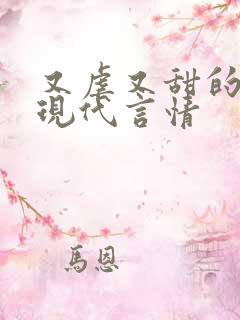 又虐又甜的
現代言情
馬恩